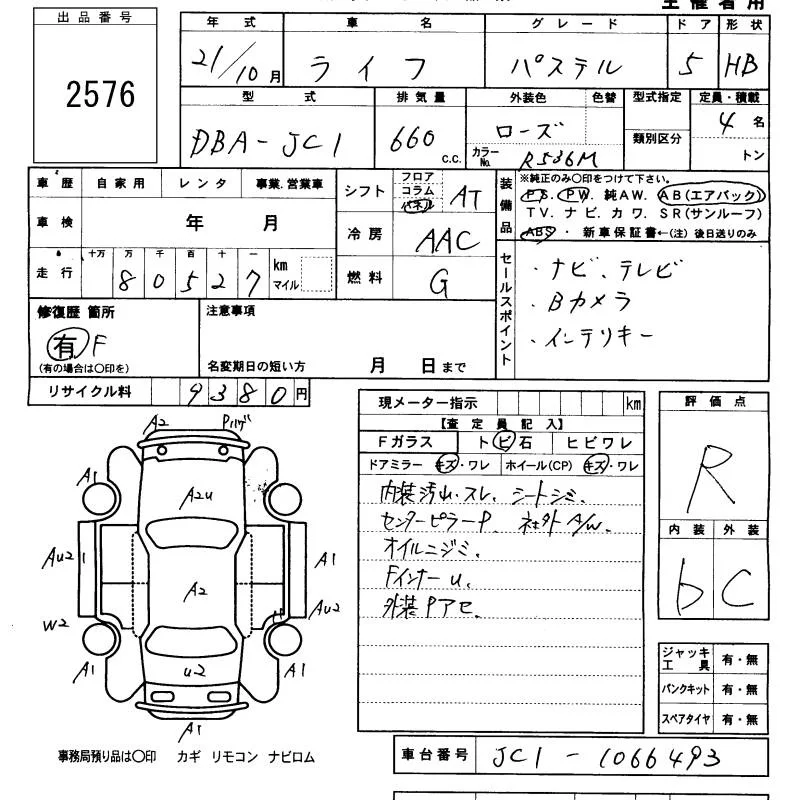 主催者用
出品番号
2576
年式 車名 グレード ドア 形状
21/10月 ライフ パステル 5 HB
型式 排気量 外装色 色替 型式指定 定員・積載
DBA-JC1 660 c.c. ローズ 類別区分 4名
カラーNo. R536M トン
車歴 自家用 レンタ 事業.営業車
車検 年 月
走行 十万 万 千 百 十 一 km マイル
80527
シフト フロア コラム パネル AT
冷房 AAC
燃料 G
装備品
※純正のみ〇印をつけて下さい。
P S. P W. 純AW. AB(エアバック)
TV. ナビ. カワ. SR(サンルーフ)
ABS・ 新車保証書←(注)後日送りのみ
セールスポイント
・ナビ、テレビ
・Bカメラ
・インテリキー
修復歴 箇所
有 F
(有の場合は〇印を)
注意事項
名変期日の短い方 月 日まで
リサイクル料 9380円
現メーター指示 km
【査定員記入】
Fガラス トビ石 ヒビワレ
ドアミラー キズ・ワレ ホイール(CP) キズ・ワレ
内装汚れ・スレ、シートシミ、
センターピラーP、社外A/W、
オイルニジミ、
Fインナーu、
外装Pアセ、
評価点
R
内装 外装
b C
A2 Pハゲ
A1
A2u
Au2
A1
A2
Au2
W2 P
A1 u2 A1
A1
ジャッキ工具 有・無
パンクキット 有・無
スペアタイヤ 有・無
事務局預り品は〇印 カギ リモコン ナビロム
車台番号 JC1-1066493